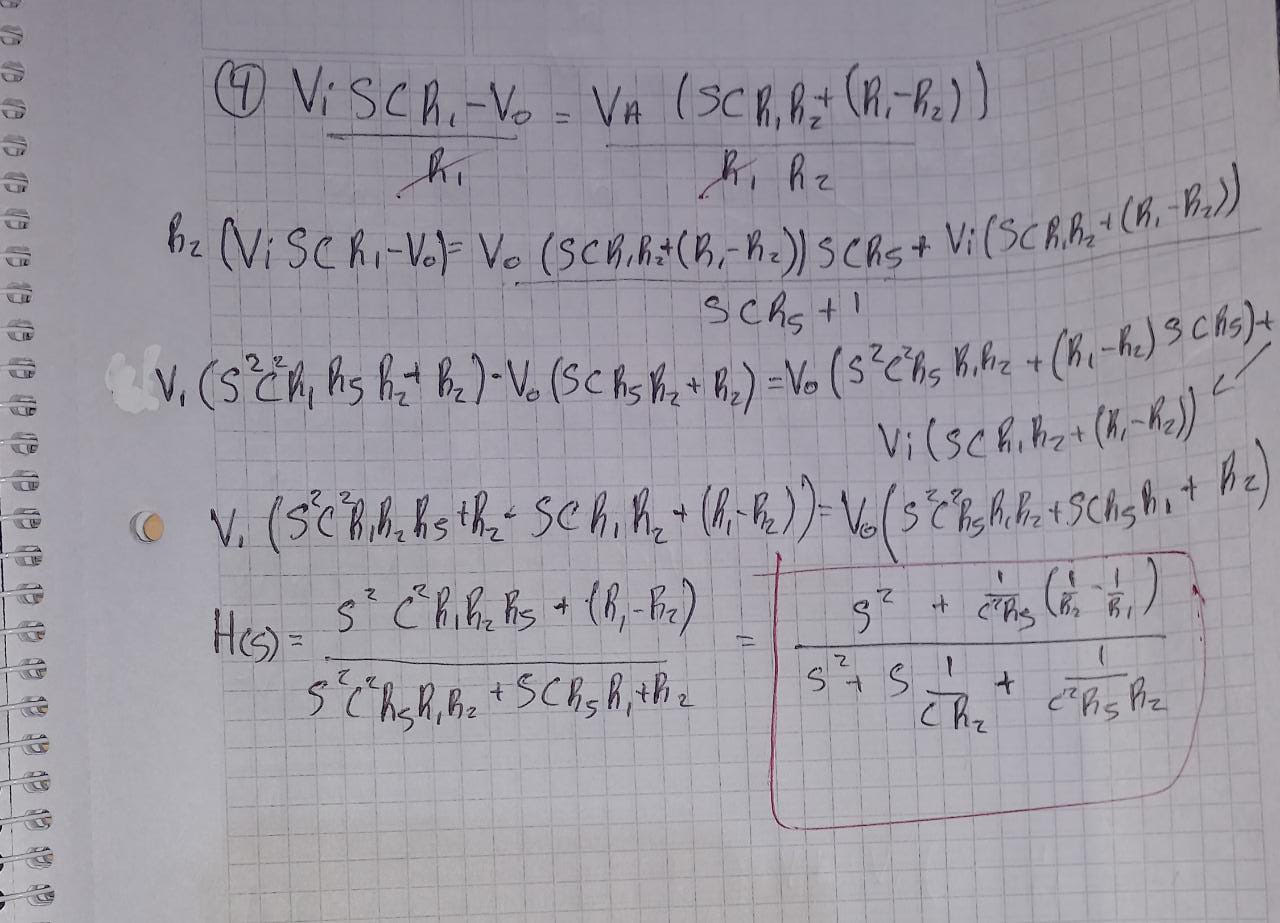 ④ (Vi SCR₁ - V₀)/R₁ = VA (SCR₁R₂ + (R₁-R₂))/(R₁ R₂)
R₂ (Vi SCR₁ - V₀) = (V₀ (SCR₁R₂+(R₁-R₂)) SCR₅ + Vi (SCR₁R₂+(R₁-R₂)))/(SCR₅ + 1)
Vi (S²C²R₁R₅R₂ + R₂) - V₀ (SCR₅R₂ + R₂) = V₀ (S²C²R₅R₁R₂ + (R₁-R₂) SCR₅) +
Vi (SCR₁R₂ + (R₁-R₂))
Vi (S²C²R₁R₂R₅ + R₂ - SCR₁R₂ + (R₁-R₂)) = V₀ (S²C²R₅R₁R₂ + SCR₅R₁ + R₂)
H(s) = (S²C²R₁R₂R₅ + (R₁-R₂))/(S²C²R₅R₁R₂ + SCR₅R₁ + R₂) = (S² + 1/(C²R₅) (1/R₂ - 1/R₁))/(S² + S 1/(CR₂) + 1/(C²R₅R₂))